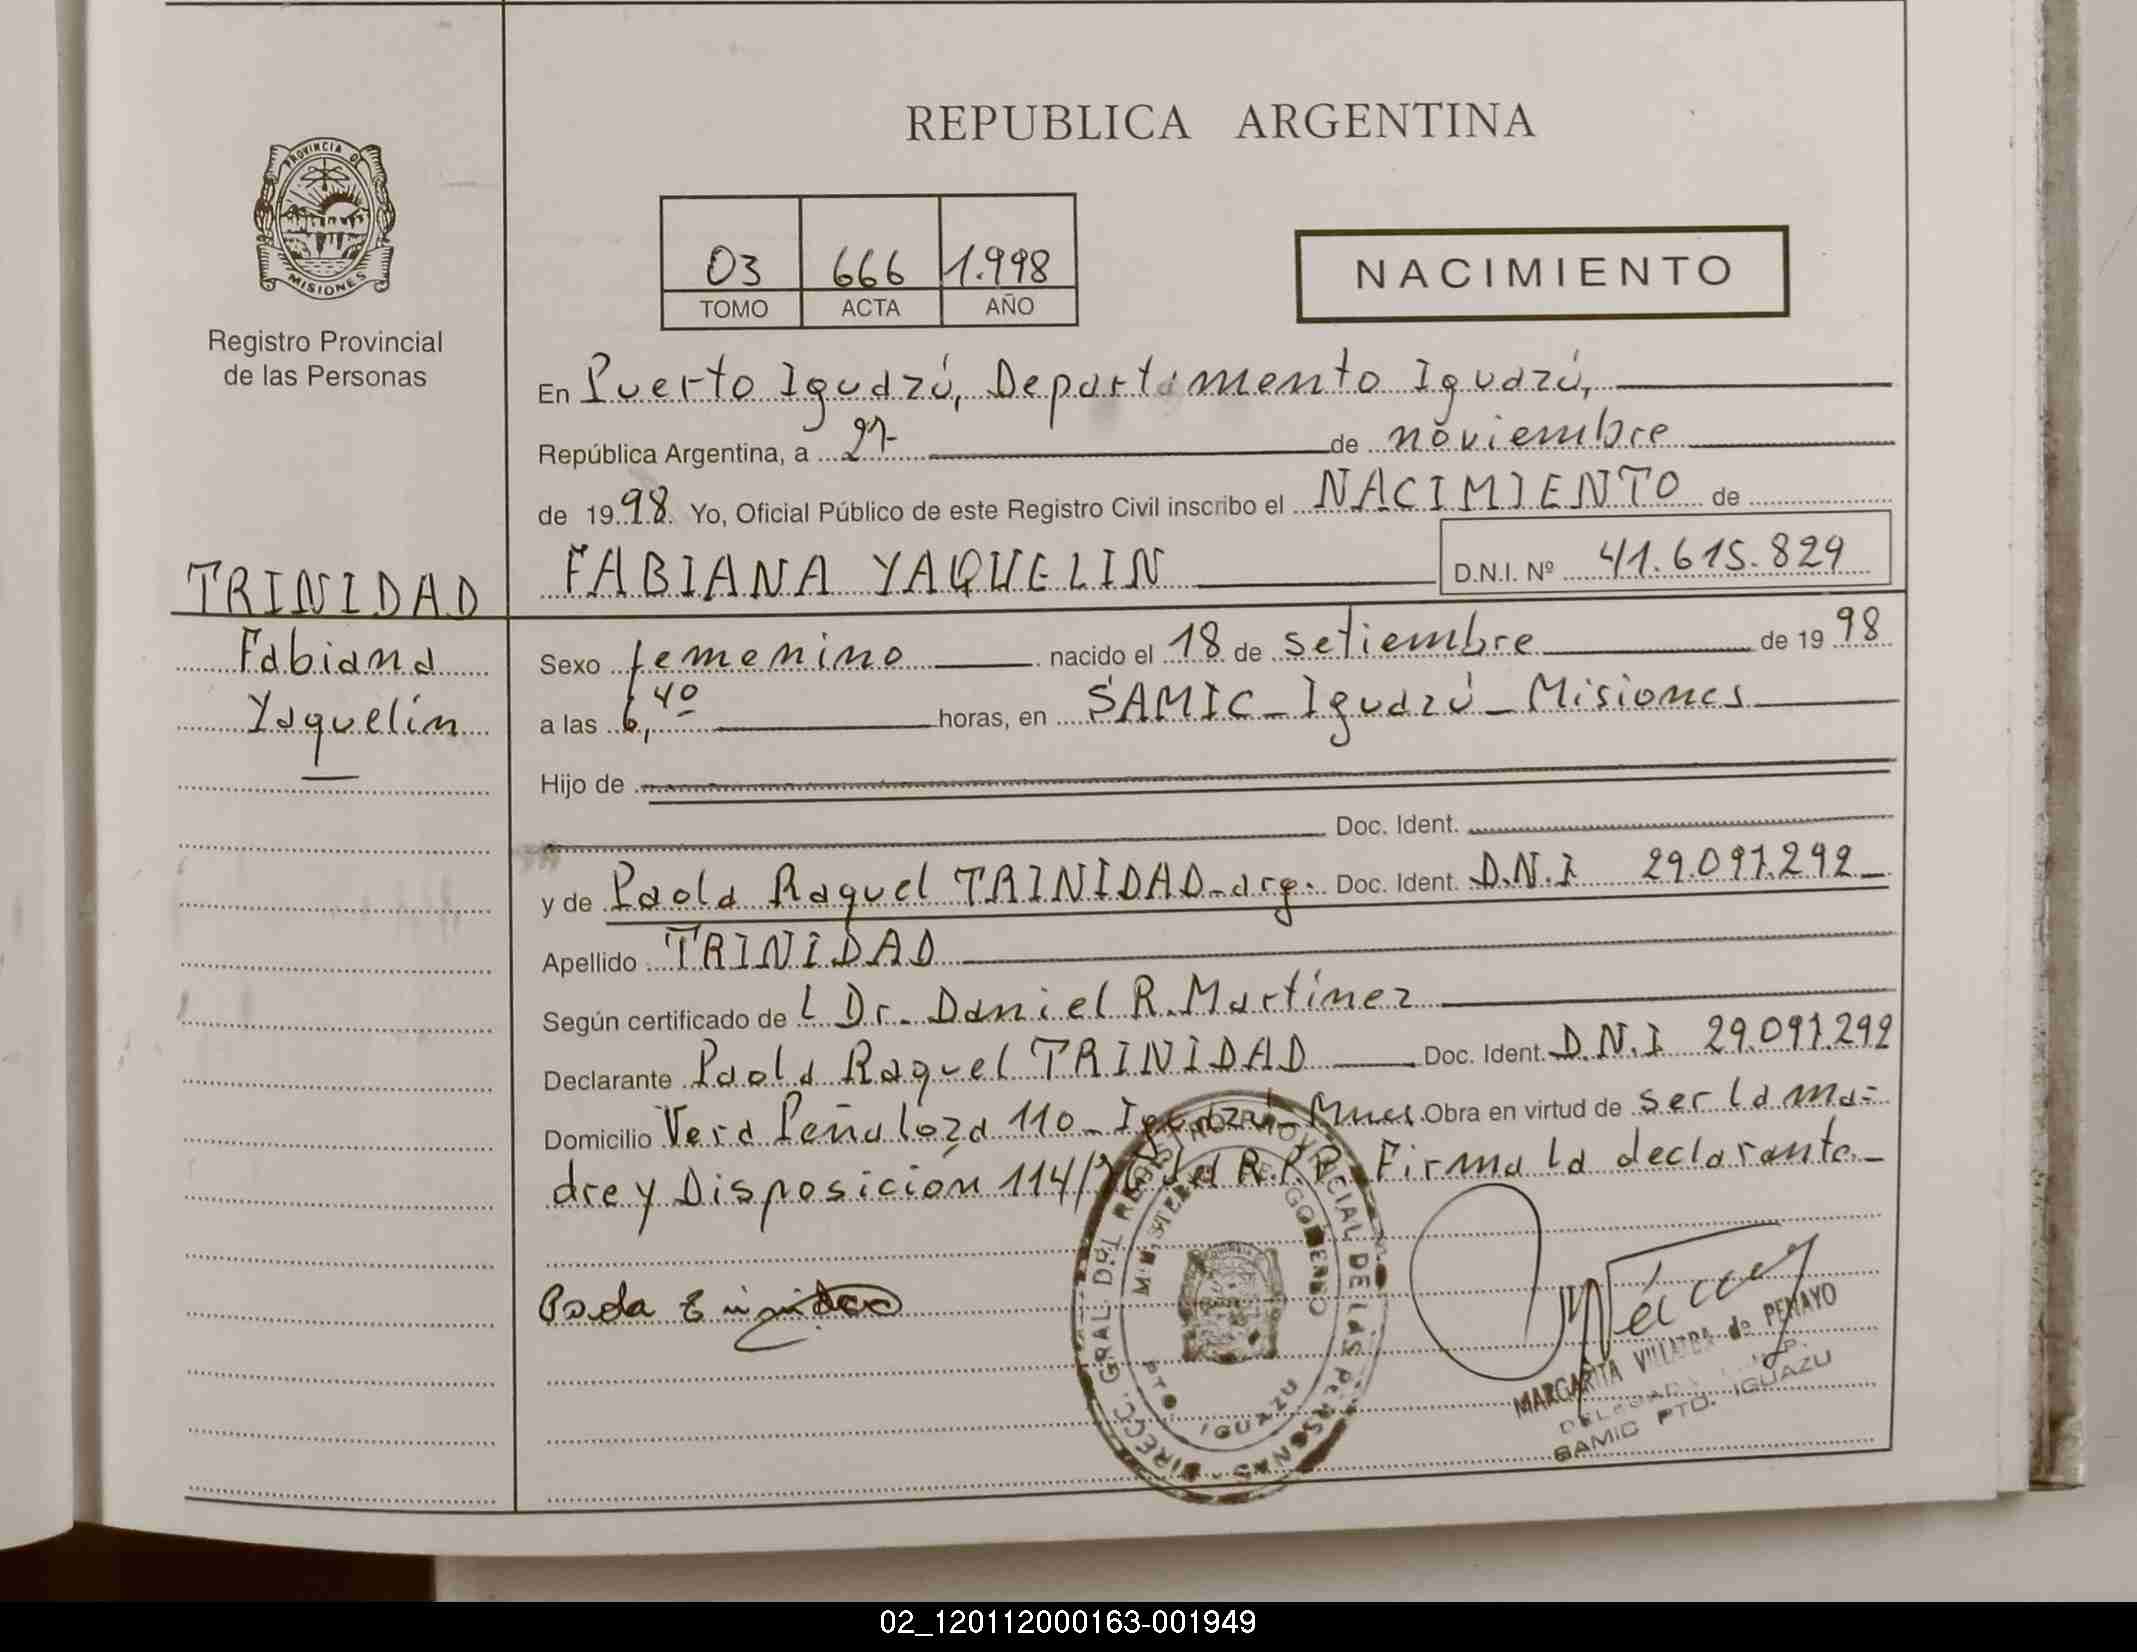 REPUBLICA ARGENTINA
PROVINCIA DE
MISIONES
Registro Provincial
de las Personas
03 666 1.998
TOMO ACTA AÑO
NACIMIENTO
En Puerto Iguazú, Departamento Iguazú,
República Argentina, a 27 de noviembre
de 1998. Yo, Oficial Público de este Registro Civil inscribo el NACIMIENTO de
FABIANA YAQUELIN D.N.I. Nº 41.615.829
TRINIDAD
Fabiana
Yaquelin
Sexo femenino nacido el 18 de setiembre de 1998
a las 6,40 horas, en SAMIC - Iguazú - Misiones
Hijo de
Doc. Ident.
y de Paola Raquel TRINIDAD - arg. Doc. Ident. D.N.I 29.097.292
Apellido TRINIDAD
Según certificado de L Dr. Daniel R. Martínez
Declarante Paola Raquel TRINIDAD Doc. Ident. D.N.I 29.097.292
Domicilio Vera Peñaloza 110 - Iguazú - Mnes Obra en virtud de ser la ma=
dre y Disposición 114/ del R.P.P. Firma la declarante.-
DIRECC. GRAL. DEL REGISTRO PROVINCIAL DE LAS PERSONAS
MINISTERIO DE GOBIERNO
PTO IGUAZU
MARGARITA VILLALBA de PENAYO
SAMIC PTO. IGUAZU
02_120112000163-001949